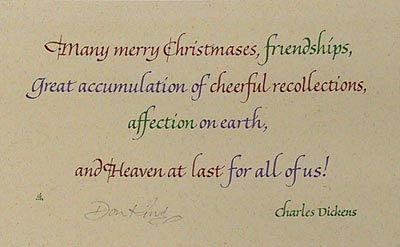 Many merry Christmases, friendships,
Great accumulation of cheerful recollections,
affection on earth,
and Heaven at last for all of us!
Don King
Charles Dickens